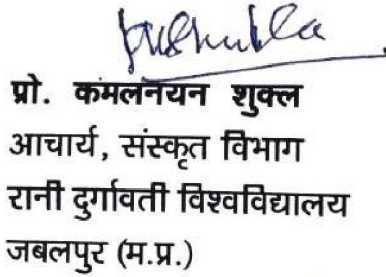 प्रो. कमलनयन शुक्ल
आचार्य, संस्कृत विभाग
रानी दुर्गावती विश्वविद्यालय
जबलपुर (म.प्र.)